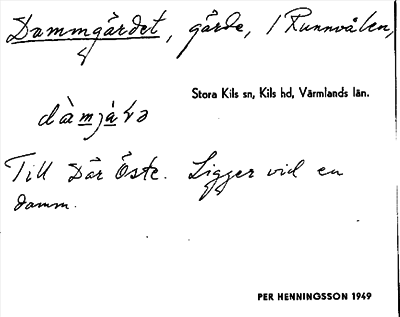 Dammgärdet, gärde, i Runnvålen,
Stora Kils sn, Kils hd, Värmlands län.
Till Där Öste. Ligger vid en
damm.
PER HENNINGSSON 1949